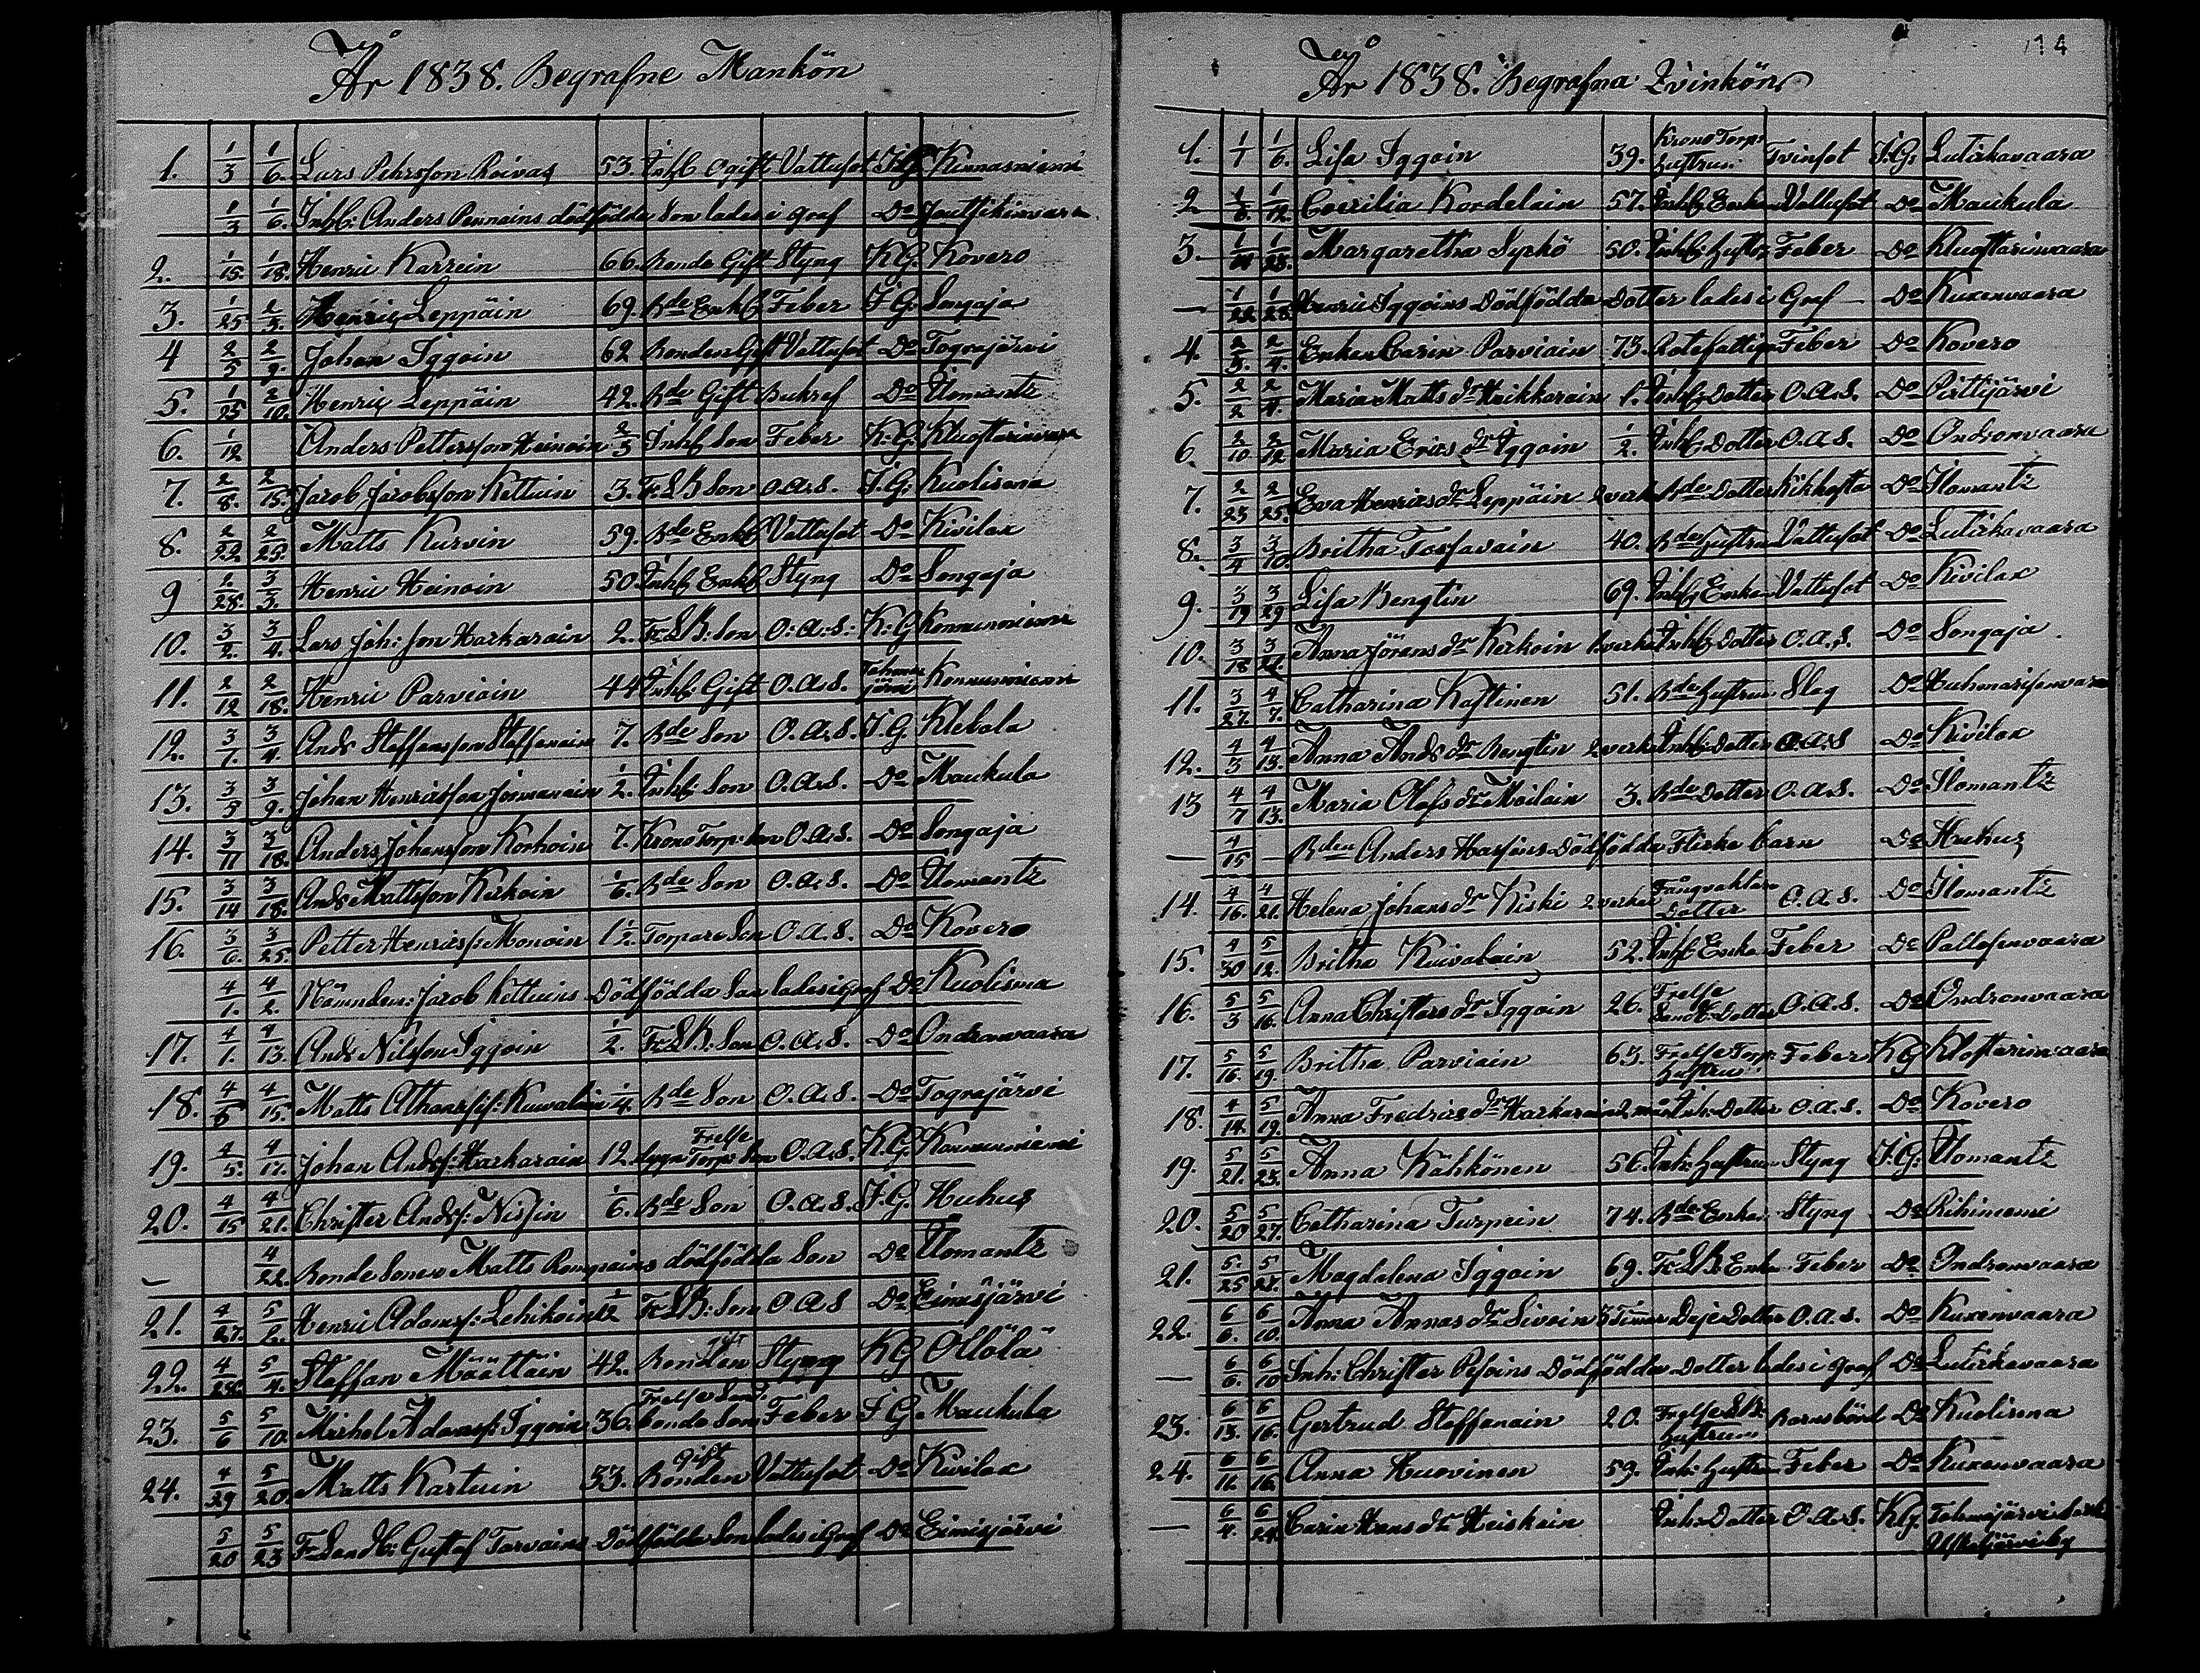 År 1838. Begrafne Mankön
1. 1/3 1/6. Lars Pehrsson Roivas 53. Inhs ogift Vattusot I.G. Kinnasniemi
1/3 1/6. Inhs: Anders Pennains dödfödda Son lades i graf Do
2. 1/15 1/18. Henric Karrein 66. Bonde Gift Styng K.G. Kovero
3. 1/25 2/3. Henric Leppäin 69. Bde Enkl. Feber I.G. Songaja
4 2/5 2/9. Johan Iggoin 62 Bonden Gift Vattusot Do Tograjärvi
5. 1/25 2/10. Henric Leppäin 42. Bde Gift Do Ilomantz
6. 1/12 Anders Pettersson Heinoin 2/3 Inhs Son Feber K.G. Kluostarinvaara
7. 2/8. 2/15. Jacob Jacobsson Kettuin 3. Fr.S.B Son O.a.S. I.G. Kuolisma
8. 2/22 2/25. Matts Kurvin 59. Bde Enkl Vattusot Do Kivilax
9 2/28. 3/3. Henric Heinoin 50 Inhs Enkl Styng Do Songaja
10. 3/2. 3/4. Lars Joh: son Harkarain 2. Fr.S.B: Son O.a.S. K.G Konnunniemi
11. 2/12 2/18. Henric Parviain 44 Inhs: Gift O.a.S. Tohmajärvi Konnunniemi
12. 3/1. 3/4. Ands Staffansson Staffanain 7. Bde Son O.a.S. I.G Klebala
13. 3/5 3/9. Johan Henricsson Jormanain 1/2. Inhs: Son O.a.S. Do Maukula
14. 3/11 3/18. Anders Johansson Korhoin 7. Krono Torp: Son O.a.S. Do Songaja
15. 3/14 3/18. Ands Mattsson Kerkoin 1/6. Bde Son O.a.S. Do Ilomantz
16. 3/6. 3/25. Petter Henricss: Monoin 1 1/2. Torpare Son O.a.S. Do Kovero
4/1. 4/2. Nämndem: Jacob Kettuins Dödfödda Son lades i graf Do Kuolisma
17. 4/1. 4/13. Ands Nilsson Iggoin 1/2. Fr.S.B: Son O.a.S. Do Ondronvaara
18. 4/5 4/15. Matts Kuivalain 1/4. Bde Son O.a.S. Do Tograjärvi
19. 4/5. 4/17. Johan Ands: Harkarain 12 Frelse Torp: Son O.a.S. K.G. Konnunniemi
20. 4/15 4/21. Christer Ands: Nissin 1/6. Bde Son O.a.S. I.G. Huhus
— 4/22. Bonde Sonen Matts Romppains dödfödda Son Do Ilomantz
21. 4/27. 5/2. Henric Adams: Lehikoin 1/12 Fr.S.B: Son O.a.S Do Eimisjärvi
22. 4/28. 5/4. Staffan Määttäin 42. Bonden gift Styng K.G Ollola
23. 5/6 5/10. Michel Adams: Iggoin 36. Frelse Land: bonde Son Feber I.G Maukula
24. 4/29 5/20. Matts Kartuin 53. Bonden Gift Vattusot Do Kivilax
5/20 5/23 F: Landb: Gustaf Tarvains Dödfödda Son lades i Graf Do Eimisjärvi
114
År 1838. Begrafna Qvinkön
1. 1/1 1/6. Lisa Iggoin 39. Krono Torp: hustrun: Tvinsot I.G. Lutickavaara
2 1/6. 1/12. Coecilia Kordelain 57. Inhs Enkan Vattusot Do Maukula
3. 1/14 1/28. Margaretha Syrkö 50. Inhs: hustr Feber Do Kluostarinvaara
— 1/22 1/28. Henric Iggoins Dödfödda Dotter lades i Graf — Do Kuxenvaara
4. 2/3. 2/4. Enkan Carin Parviain 73. Rotefattig Feber Do Kovero
5. 2/2 2/4. Maria Matts dr Heikkarain 1. Inhs: Dotter O.a.S. Do Pirttijärvi
6 2/10. 2/12 Maria Erics dr Iggoin 1/2. Inhs: Dotter O.a.S. Do Ondronvaara
7. 2/23 2/25. Eva Henrics dr Leppäin 2 veck Bde Dotter Kikhosta Do Ilomantz
8. 3/4 3/10. Britha Tossavain 40. Bde hustru Vattusot Do Lutickavaara
9. 3/19 3/29 Lisa Bengtin 69. Inhs Enkan Vattusot Do Kivilax
10. 3/18 3/21. Anna Jörans dr Kerkoin Inhs Dotter O.a.S. Do Songaja
11. 3/27. 4/7. Catharina Kastinen 51. Bde hustrun Slag Do Huhmarisenvaara
12. 4/3 4/13. Anna Ands dr Bengtin 2 veck Inhs: Dotter O.a.S Do Kivilax
13 4/7 4/13. Maria Olofs dr Moilain 3. Bde Dotter O.a.S. Do Ilomantz
— 4/15 — Bden Anders Dödfödda Flicke barn Do Huhus
14. 4/16. 4/21. Helena Johans dr Kiski 2 veckor Fångvaktare Dotter O.a.S. Do Ilomantz
15. 4/30 5/12. Britha Kuivalain 52. Inhs: Enka Feber Do Pallosenvaara
16. 5/3 5/16. Anna Christers dr Iggoin 26. Frelse Landb: Dotter O.a.S. Do Ondronvaara
17. 5/16. 5/19. Britha Parviain 63. Frelse Torp: hustrun Feber K.G Klostarinvaara
18. 4/14. 5/19. Anna Fredrics dr Harkarain 2 mån Inh: Dotter O.a.S. Do Kovero
19. 5/21. 5/23. Anna Kähkönen 56. Inh: hustrun Styng I.G: Ilomantz
20. 5/20 5/27. Catharina Turpein 74. Bde Enkan Styng Do Rihiniemi
21. 5/25 5/28. Magdalena Iggoin 69. Fr.S.B: Enka Feber Do Ondronvaara
22. 6/6. 6/10. Anna Annas dr Sivoin 3 Timar Deje Dotter O.a.S. Do Kuxenvaara
— 6/6. 6/10 Inh: Christer Pesoins Dödfödda Dotter lades i graf Do Lutickavaara
23. 6/13. 6/16. Gertrud Staffanain 20. Frelse L.B: hustrun Barnsbörd Do Kuolisma
24. 6/11. 6/16. Anna Huovinen 59. Inh: hustrun Feber Do Kuxenvaara
— 6/4. 6/24. Carin Hans dr Heiskain Inh: Dotter O.a.S. K.G. Tohmajärvi